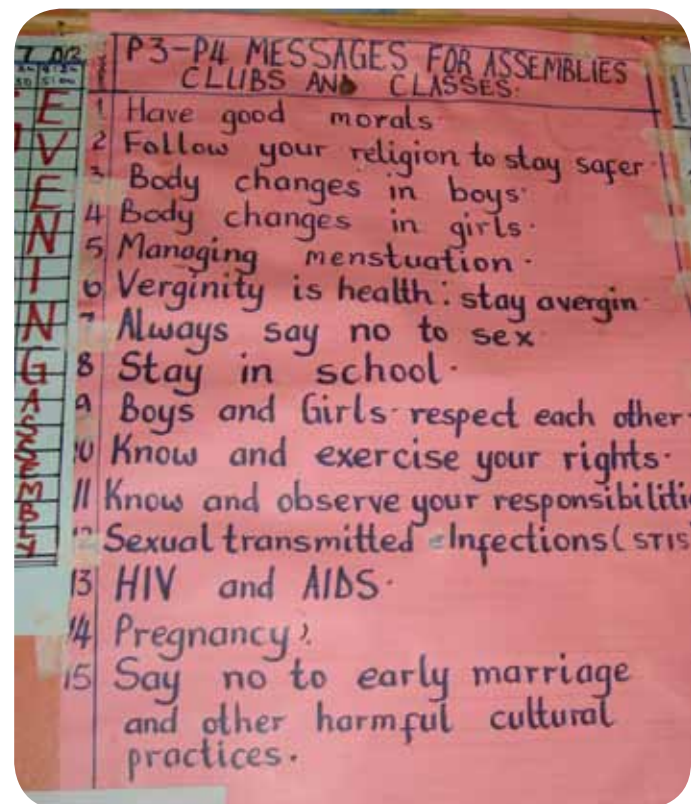 P3-P4 MESSAGES FOR ASSEMBLIES
CLUBS AND CLASSES.
1 Have good morals
2 Follow your religion to stay safer.
3 Body changes in boys.
4 Body changes in girls.
5 Managing menstuation.
6 Verginity is health: stay avergin
7 Always say no to sex
8 Stay in school.
9 Boys and Girls. respect each other.
10 Know and exercise your rights.
11 Know and observe your responsibiliti
12 Sexual transmitted Infections (STIS
13 HIV and AIDS.
14 Pregnancy
15 Say no to early marriage
and other harmful cultural
practices.
EVENING ASSEMBLY